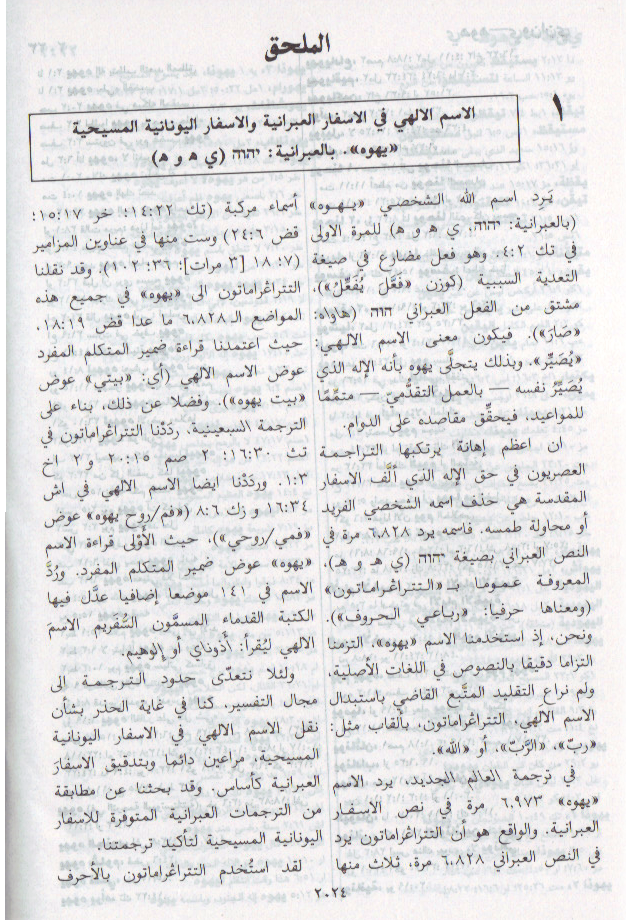 الملحق
١
الاسم الالهي في الاسفار العبرانية والاسفار اليونانية المسيحية
«يهوه». بالعبرانية: יהוה (ي ه‍ و ه‍)
يَرِد اسم الله الشخصي «يهوه»
(بالعبرانية: יהוה، ي ه‍ و ه‍) للمرة الاولى
في تك ٢:٤. وهو فعل مضارع في صيغة
التعدية السببية (كوزن «فَعَّلَ يُفَعِّلُ»)،
مشتق من الفعل العبراني הוה (هاواه:
«صَارَ»). فيكون معنى الاسم الالهي:
«يُصَيِّر». وبذلك يتجلَّى يهوه بأنه الإله الذي
يُصَيِّر نفسه — بالعمل التقدُّميّ — متمِّمًا
للمواعيد، فيحقِّق مقاصده على الدوام.
ان اعظم إهانة يرتكبها التراجمة
العصريون في حق الإله الذي ألَّف الاسفار
المقدسة هي حذف اسمه الشخصي الفريد
أو محاولة طمسه. فاسمه يرد ٦٬٨٢٨ مرة في
النص العبراني بصيغة יהוה (ي ه‍ و ه‍)،
المعروفة عموما بـ «التتراغراماتون»
(ومعناها حرفيا: «رباعي الحروف»).
ونحن، إذ استخدمنا الاسم «يهوه»، التزمنا
التزاما دقيقا بالنصوص في اللغات الأصلية،
ولم نراع التقليد المتَّبع القاضي باستبدال
الاسم الالهي، التتراغراماتون، بألقاب مثل:
«ربّ»، «الرَّبّ»، أو «الله».
في ترجمة العالم الجديد، يرد الاسم
«يهوه» ٦٬٩٧٣ مرة في نص الاسفار
العبرانية. والواقع هو أن التتراغراماتون يرد
في النص العبراني ٦٬٨٢٨ مرة، ثلاث منها
أسماء مركبة (تك ١٤:٢٢؛ خر ١٥:١٧؛
قض ٢٤:٦) وست منها في عناوين المزامير
(٧؛ ١٨ [٣ مرات]؛ ٣٦؛ ١٠٢). وقد نقلنا
التتراغراماتون الى «يهوه» في جميع هذه
المواضع الـ ٦٬٨٢٨ ما عدا قض ١٨:١٩،
حيث اعتمدنا قراءة ضمير المتكلم المفرد
عوض الاسم الالهي (أي: «بيتي» عوض
«بيت يهوه»). وفضلا عن ذلك، بناء على
الترجمة السبعينية، ردَدْنا التتراغراماتون في
تث ١٦:٣٠؛ ٢ صم ٢٠:١٥ و ٢ اخ
١:٣. وردَدْنا ايضا الاسم الالهي في اش
١٦:٣٤ و زك ٨:٦ («فم/روح يهوه» عوض
«فمي/روحي»)، حيث الأَوْلى قراءة الاسم
«يهوه» عوض ضمير المتكلم المفرد. ورُدَّ
الاسم في ١٤١ موضعا إضافيا عدَّل فيها
الكتبة القدماء المسمَّون السُّفَريم الاسمَ
الالهي ليُقرأ: أَدوناي أو إِلوهيم.
ولئلا نتعدّى حدود الترجمة الى
مجال التفسير، كنا في غاية الحذر بشأن
نقل الاسم الالهي في الاسفار اليونانية
المسيحية، مراعين دائما وبتدقيق الاسفارَ
العبرانية كأساس. وقد بحثنا عن مطابقة
من الترجمات العبرانية المتوفرة للأسفار
اليونانية المسيحية لتأكيد ترجمتنا.
لقد استُخدم التتراغراماتون بالأحرف
٢٠٢٤